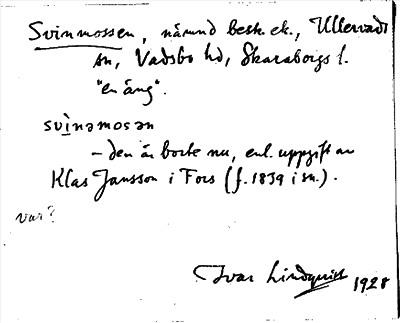 Svinmossen, nämnd besk. ek., Ullervads
sn, Vadsbo hd, Skaraborgs l.
"en äng".
svìnəmosən
– den är borte nu, enl. uppgift av
Klas Jansson i Fors (f. 1839 i sn.).
var?
Ivar Lindquist 1928